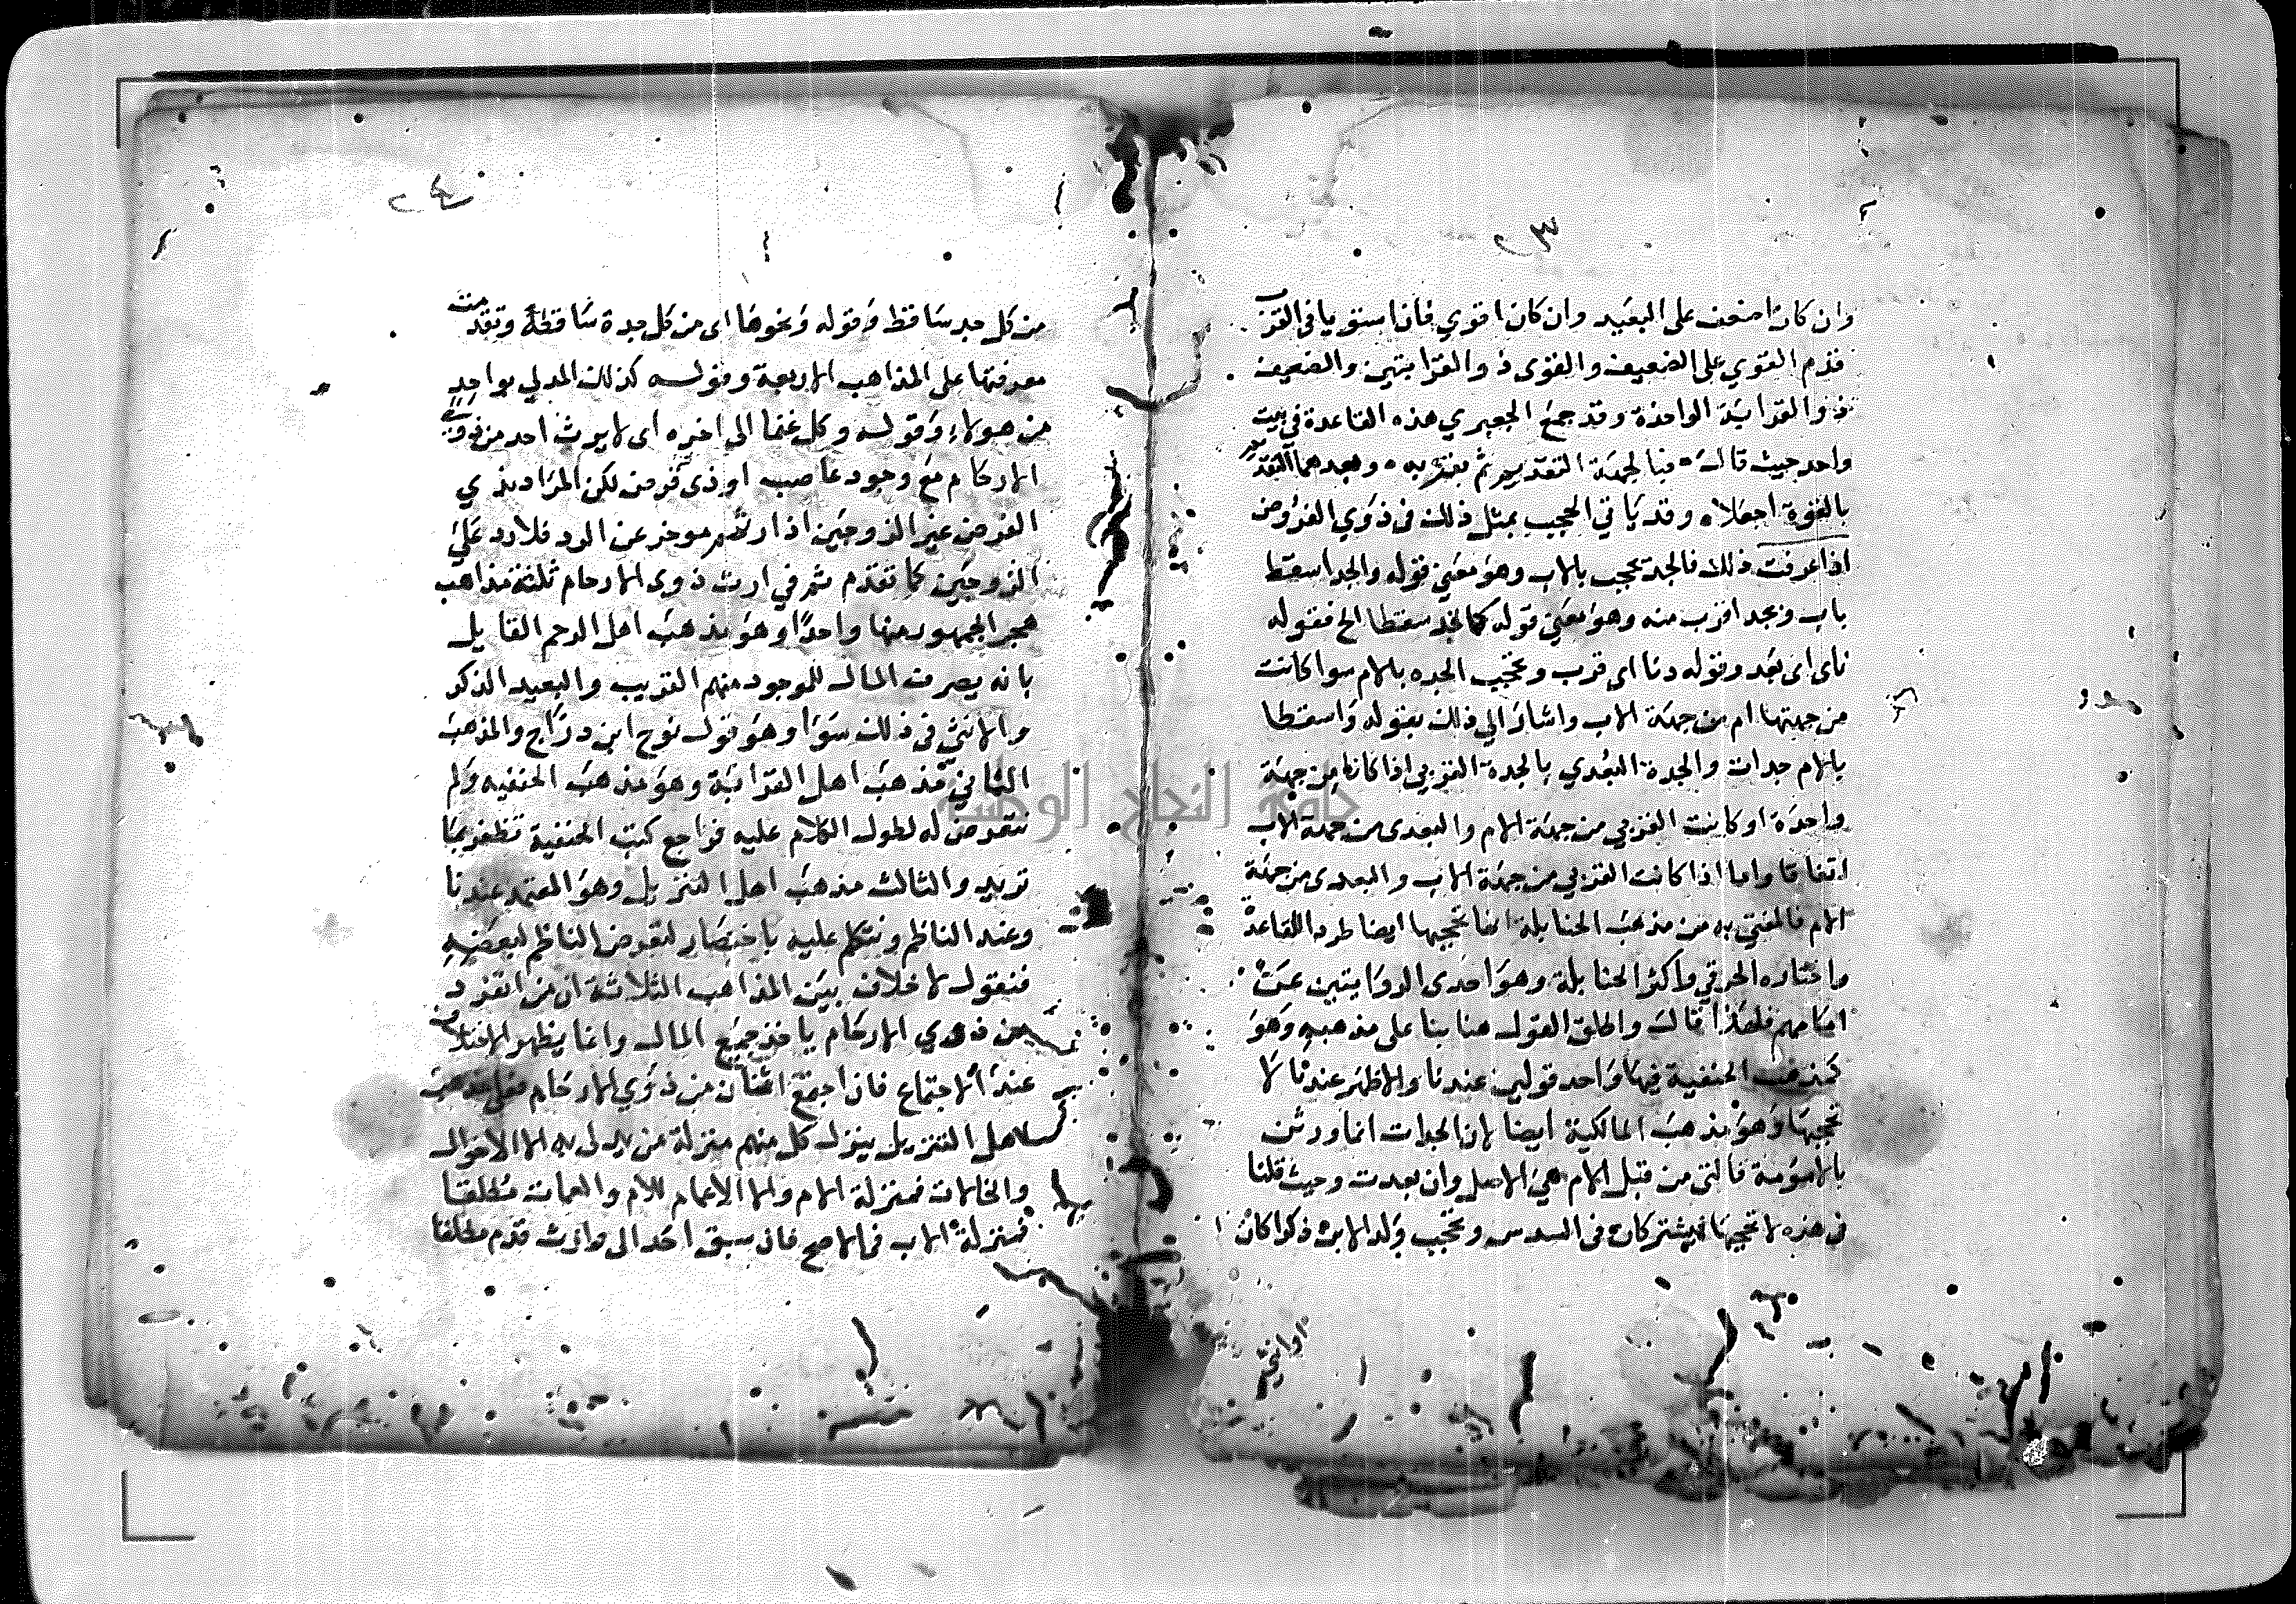 ٢٣
وان كان اضعف على البعيد وان كان اقوي فان استويا في القرب
قدم القوي على الضعيف والقوى ذو القرابتين والضعيف
ذو القرابة الواحدة وقد جمع الجعبري هذه القاعدة في بيت
واحد حيث قال فبالجهة التقديم ثم بقربه وبعدهما التقديم
بالقوة اجعلا وقد ياتي الحجب بمثل ذلك في ذوي الفروض
اذا عرفت ذلك فالجد يحجب بالاب وهو معنى قوله والجد اسقط
باب وبجد اقرب منه وهو معنى قوله كالجد سقطا الخ فقوله
ناى اى بعد وقوله دنا اى قرب وتحجب الجده بالام سوا كانت
من جهتها ام من جهة الاب واشار الي ذلك بقوله واسقطا
بالام جدات والجدة البعدي بالجدة القربي اذا كانتا من جهة
واحدة او كانت القربي من جهة الام والبعدى من جهة الاب
اتفاقا واما اذا كانت القربي من جهة الاب والبعدى من جهة
الام فالمفتى به من مذهب الحنابلة انها تحجبها ايضا طردا للقاعدة
واختاره الخرقي واكثر الحنابلة وهو احدى الروايتين عن
امامهم فلهذا قال واطلق القول هنا بنا على مذهبه وهو
كمذهب الحنفية فيها واحد قولين عندنا والاظهر عندنا لا
تحجبها وهو مذهب المالكية ايضا لان الجدات انما ورثن
بالامومة فالتى من قبل الام هي الاصل وان بعدت وحيث قلنا
في هذه لا تحجبها فيشتركان في السدس وتحجب ولد الابن ذكرا كان
او انثى
٢٤
من كل جد ساقط وقوله ونحوها اى من كل جدة ساقطة وتقدمت
معرفتها على المذاهب الاربعة وقوله كذلك المدلي بواحد
من هولاء وقوله وكل غنما الى اخره اى لا يورث احد من ذوي
الارحام مع وجود عاصب او ذى فرض لكن المراد بذي
الفرض غير الزوجين اذ ارثهم موخر عن الرد فلا رد على
الزوجين كما تقدم ثم في ارث ذوى الارحام ثلثة مذاهب
هجر الجمهور منها واحدًا وهو مذهب اهل الرحم القايل
بانه يصرف المال للموجود منهم القريب والبعيد الذكر
والانثى في ذلك سوا وهو قول نوح ابن دراج والمذهب
الثاني مذهب اهل القرابة وهو مذهب الحنفيه ولم
نتعرض له لطول الكلام عليه فراجع كتب الحنفية تظفر بما
تريد والثالث مذهب اهل التنزيل وهو المعتمد عندنا
وعند الناظم ونتكلم عليه باختصار لتعرض الناظم لبعضه
فنقول لا خلاف بين المذاهب الثلاثة ان من انفرد
من ذوي الارحام ياخذ جميع المال وانما يظهر الاختلاف
عند الاجتماع فان اجتمع اثنان من ذوي الارحام فعلى مذهب
اهل التنزيل ينزل كل منهم منزلة من يدلى به الا الاخوال
والخالات فمنزلة الام والا الاعمام للام والعمات مطلقا
فمنزلة الاب في الاصح فان سبق احد الى وارث قدم مطلقا
جامعة النجاح الوطنية